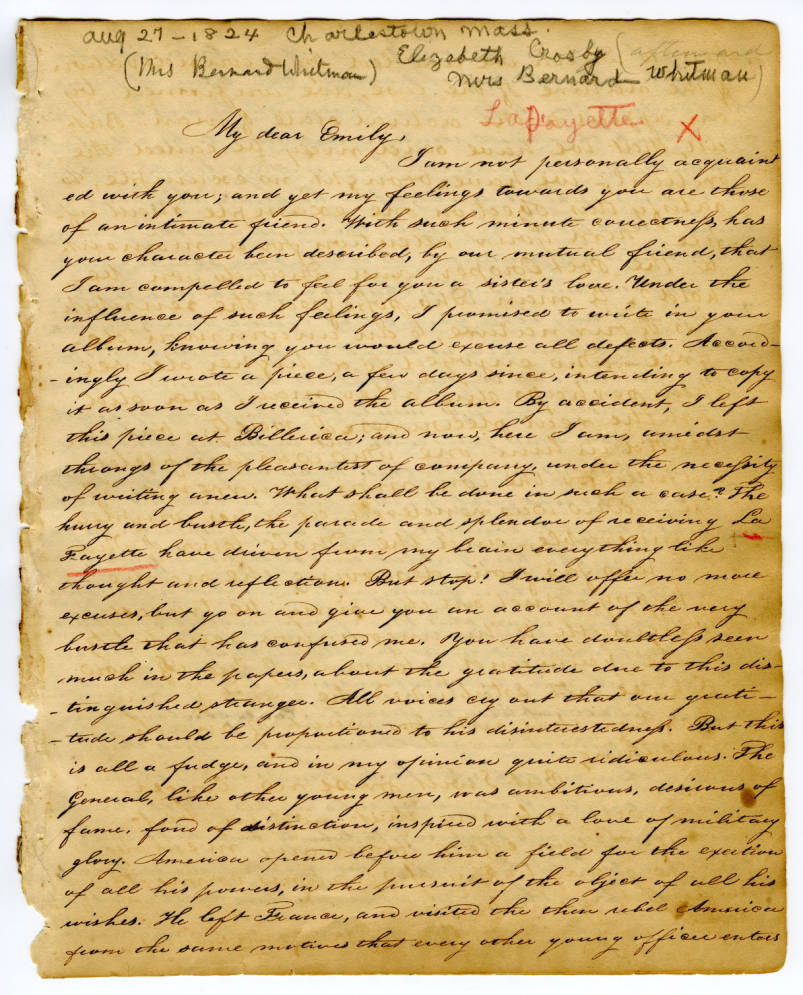 Aug 27 - 1824 Charlestown Mass.
Elizabeth Crosby (afterward
(Mrs Bernard Whitman) Mrs Bernard Whitman)
La Fayette X
My dear Emily,
I am not personally acquaint
ed with you; and yet my feelings towards you are those
of an intimate friend. With such minute correctness, has
your character been described, by our mutual friend, that
I am compelled to feel for you a sister's love. Under the
influence of such feelings, I promised to write in your
album, knowing you would excuse all defects. Accord-
-ingly I wrote a piece, a few days since, intending to copy
it as soon as I received the album. By accident, I left
this piece at Billerica; and now, here I am, amidst
throngs of the pleasantest of company, under the necessity
of writing anew. What shall be done in such a case? The
hurry and bustle, the parade and splendor of receiving La
Fayette have driven from my brain everything like
thought and reflection. But stop! I will offer no more
excuses, but go on and give you an account of the very
bustle that has confused me. You have doubtless seen
much in the papers, about the gratitude due to this dis-
-tinguished stranger. All voices cry out that our grati-
-tude should be proportioned to his disinterestedness. But this
is all a fudge, and in my opinion quite ridiculous. The
General, like other young men, was ambitious, desirous of
fame, fond of distinction, inspired with a love of military
glory. America opened before him a field for the exertion
of all his powers, in the pursuit of the object of all his
wishes. He left France, and visited the then rebel America
from the same motives that every other young officer enters